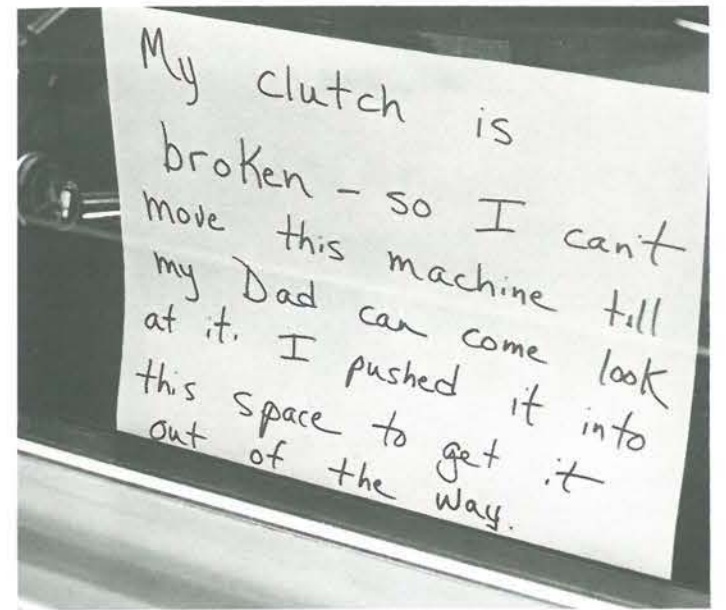 My clutch is
broken - so I can't
move this machine till
my Dad can come look
at it. I pushed it into
this space to get it
out of the way.